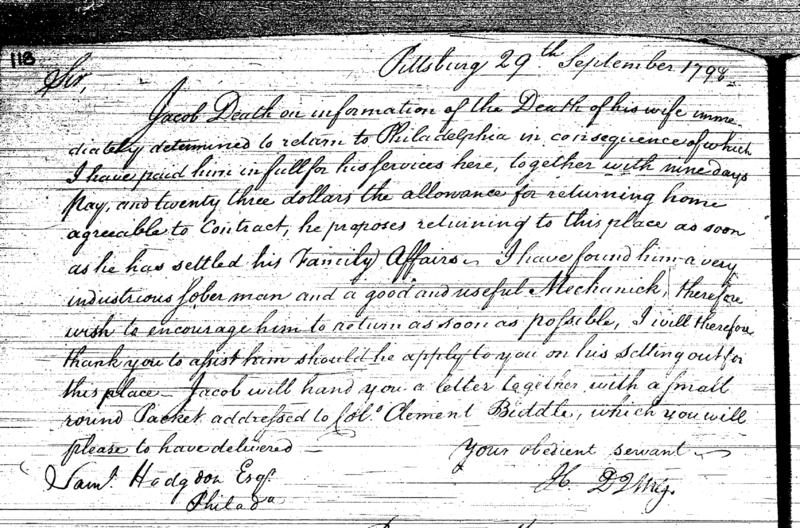 118
Pittsburg 29th September 1798
Sir,
Jacob Death on information of the Death of his wife imme
diately determined to return to Philadelphia in consequence of which
I have paid him in full for his services here, together with nine days
pay, and twenty three dollars the allowance for returning home
agreeable to Contract, he proposes returning to this place as soon
as he has settled his Family Affairs I have found him a very
industrious sober man and a good and useful Mechanick, therefore
wish to encourage him to return as soon as possible, I will therefore
thank you to assist him should he apply to you on his setting out for
this place — Jacob will hand you a letter together with a small
round Packet addressed to Colo. Clement Biddle, which you will
please to have delivered —
Your obedient servant
Saml. Hodgdon Esqr.
Philada